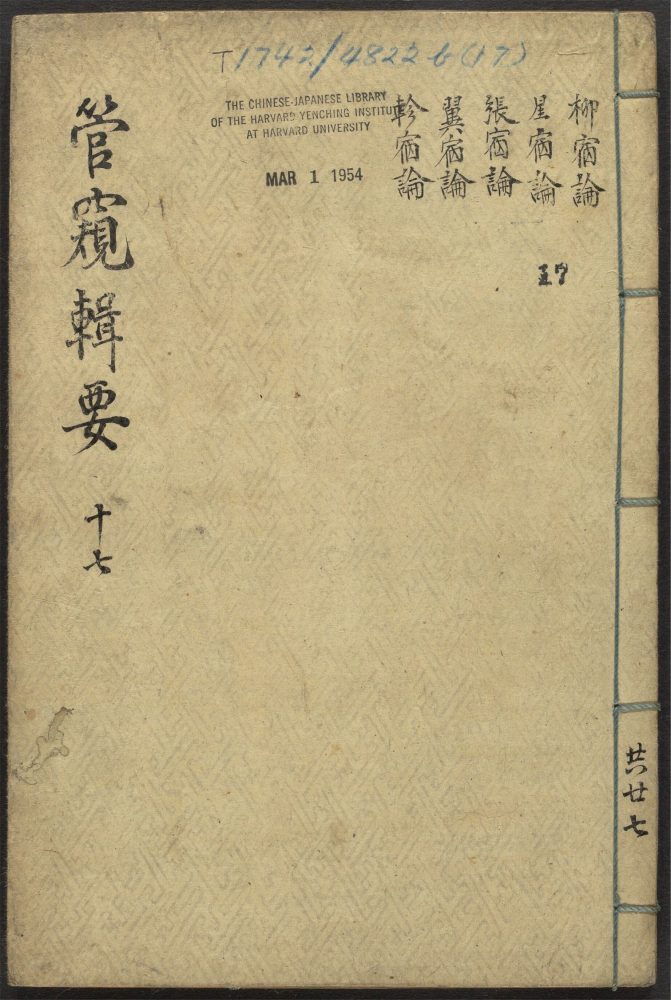 T1742/4822b(17)
THE CHINESE-JAPANESE LIBRARY
OF THE HARVARD YENCHING INSTITU
AT HARVARD UNIVERSITY
MAR 1 1954
柳宿論
星宿論
張宿論
翼宿論
軫宿論
17
管窺輯要 十七
共廿七